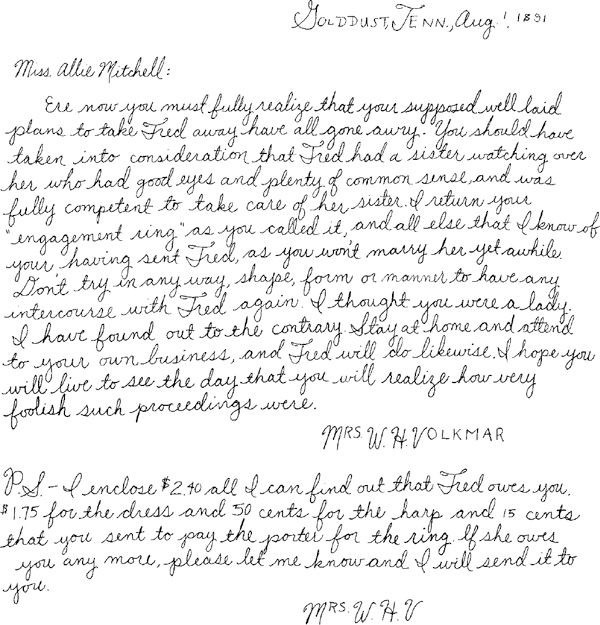 GOLDDUST, TENN., Aug. 1, 1891
Miss. Allie Mitchell:
Ere now you must fully realize that your supposed well laid
plans to take Fred away have all gone awry. You should have
taken into consideration that Fred had a sister watching over
her who had good eyes and plenty of common sense, and was
fully competent to take care of her sister. I return your
"engagement ring" as you called it, and all else that I know of
your having sent Fred, as you won't marry her yet awhile.
Don't try in any way, shape, form or manner to have any
intercourse with Fred again. I thought you were a lady.
I have found out to the contrary. Stay at home and attend
to your own business, and Fred will do likewise. I hope you
will live to see the day that you will realize how very
foolish such proceedings were.
MRS. W. H. VOLKMAR
P.S. - I enclose $2.40 all I can find out that Fred owes you.
$1.75 for the dress and 50 cents for the harp and 15 cents
that you sent to pay the porter for the ring. If she owes
you any more, please let me know and I will send it to
you.
MRS. W. H. V